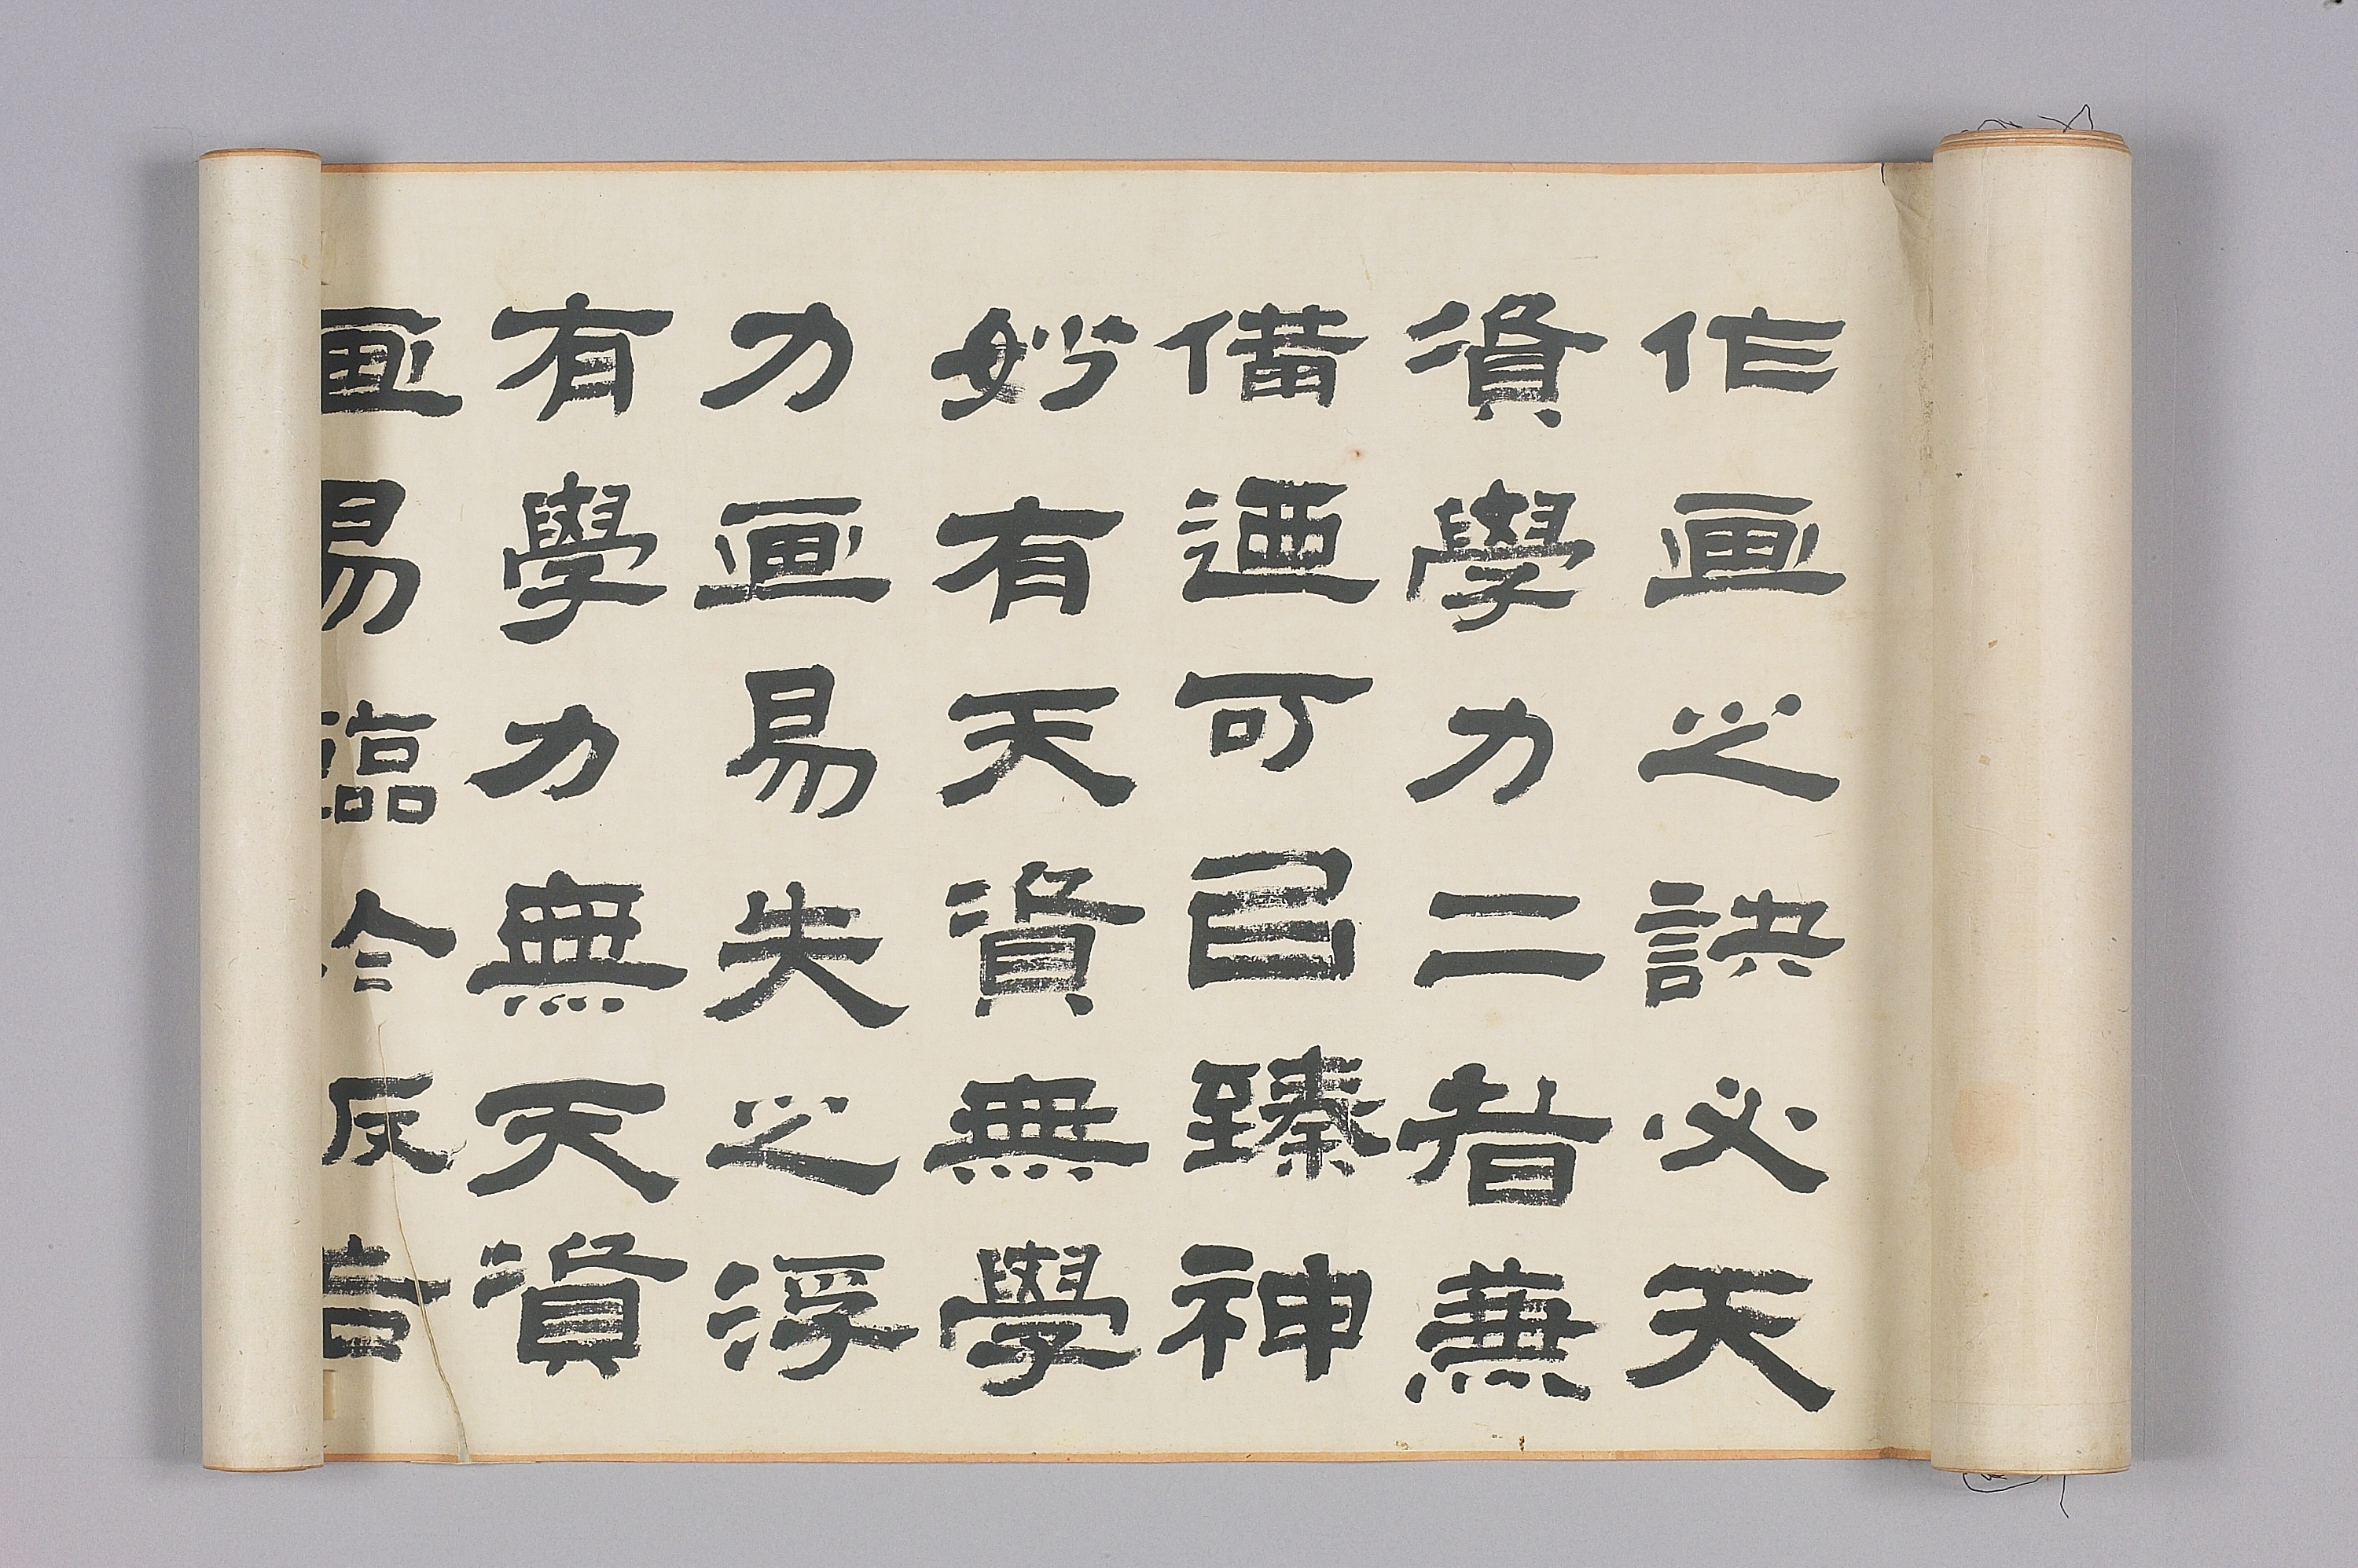 作画之訣必天
資學力二者兼
備迺可㠯臻神
妙有天資無學
力画易失之浮
有學力無天資
画易臨於